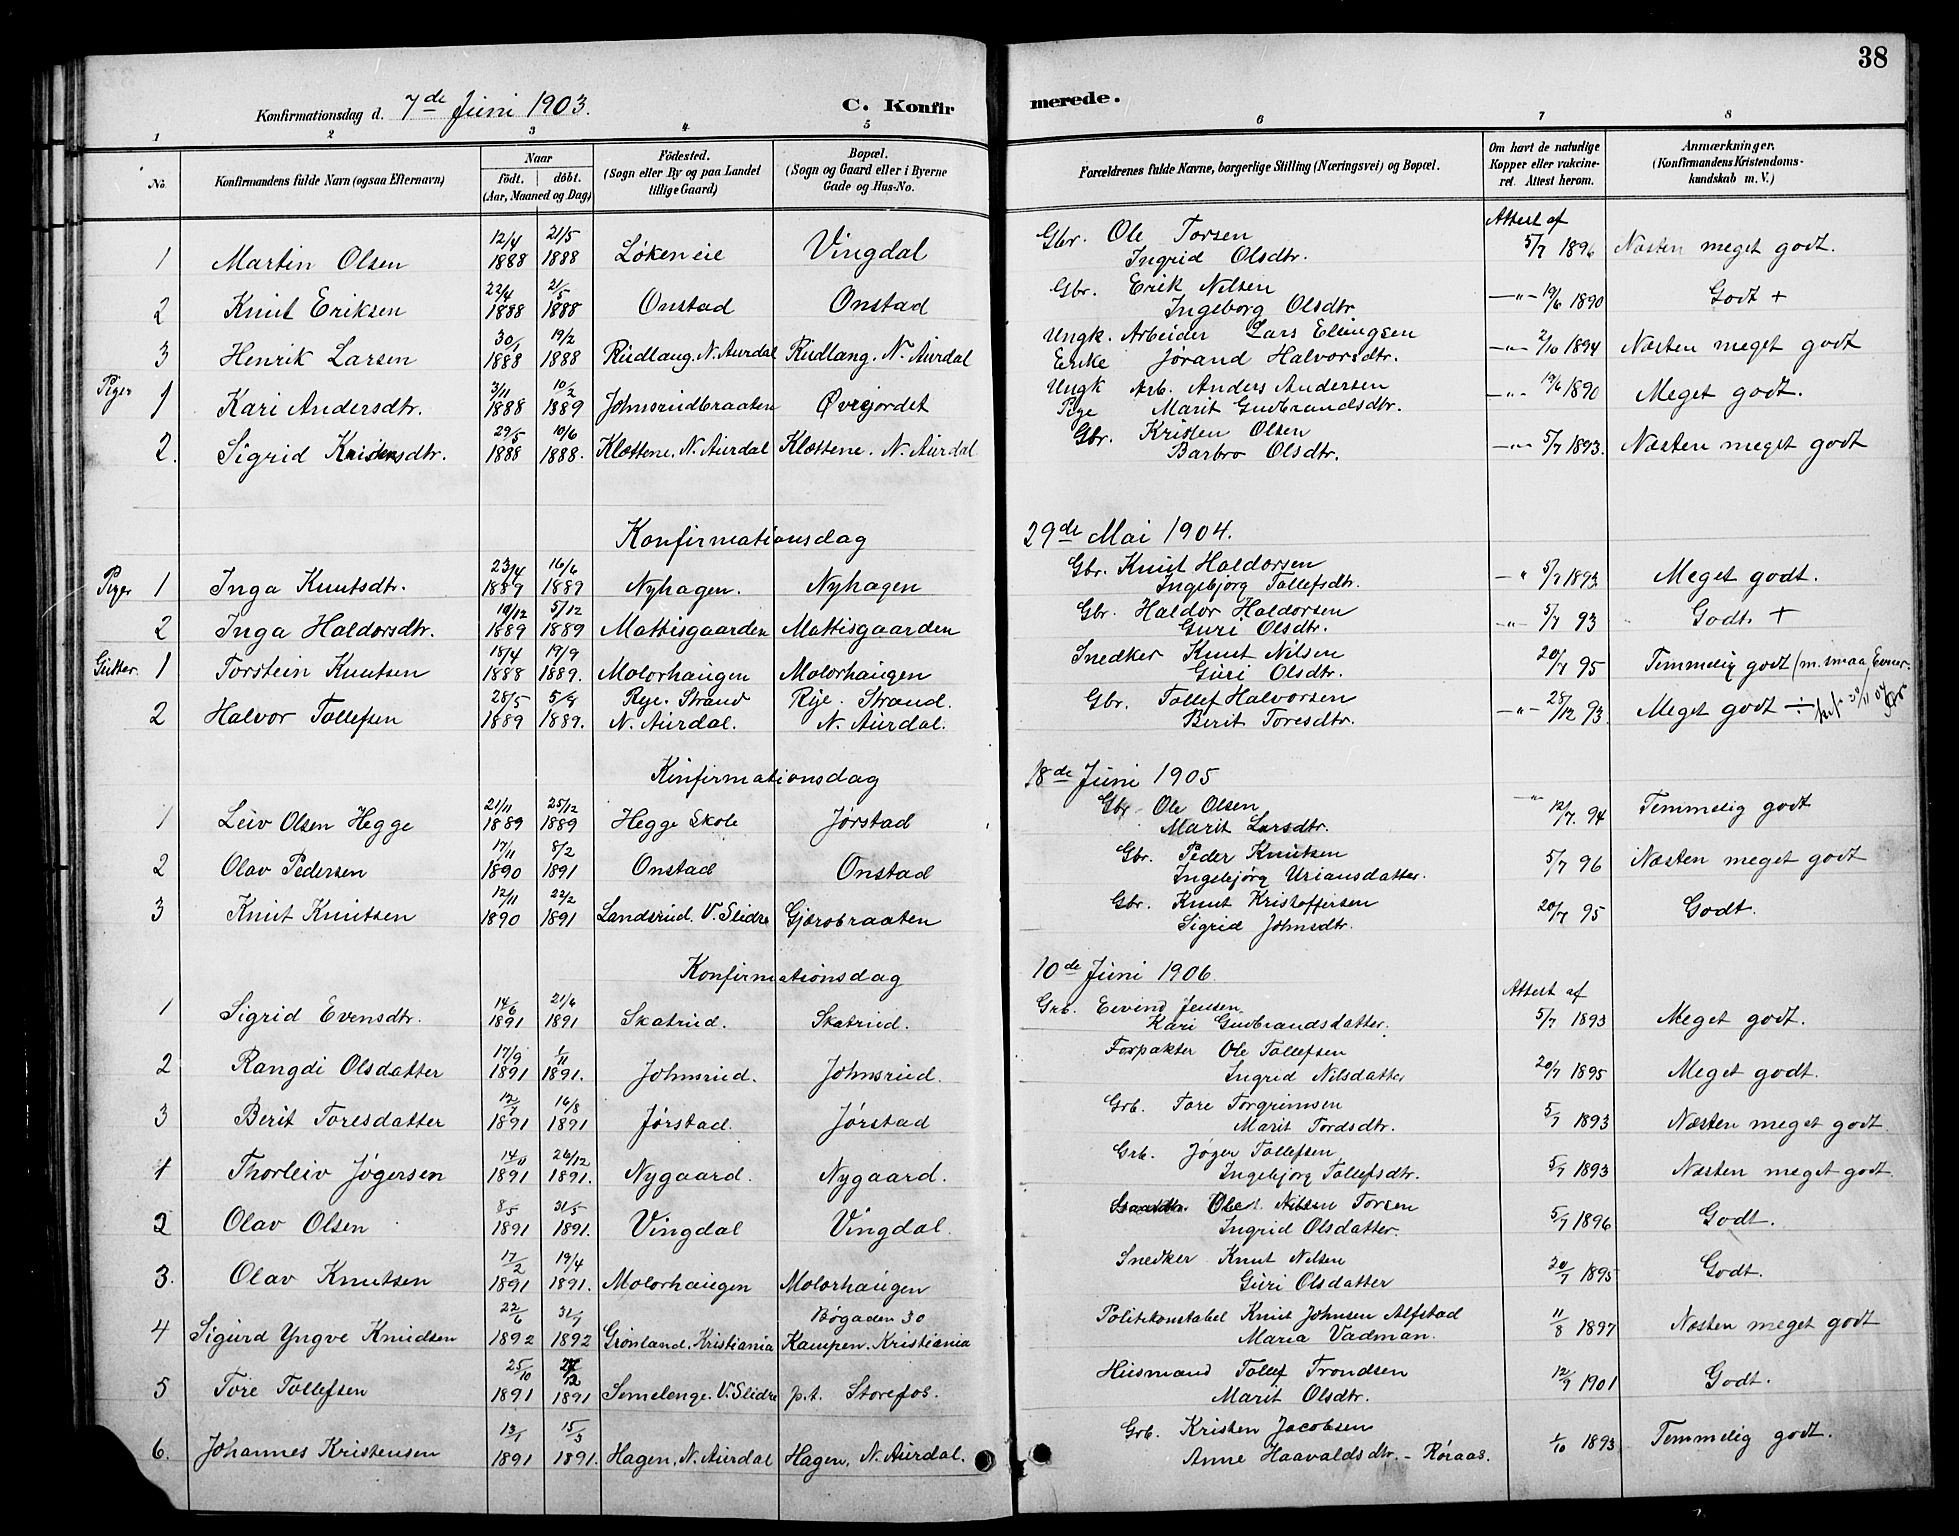 38
Konfirmationsdag d. 7de Juni 1903. C. Konfirmerede.
1 2 3 4 5 6 7 8
No. Konfirmandens fulde Navn (ogsaa Efternavn) Naar Födt. döbt. (Aar, Maaned og Dag) Födested. (Sogn eller By og paa Landet tillige Gaard) Bopæl. (Sogn og Gaard eller i Byerne Gade og Hus-No. Forældrenes fulde Navne, borgerlige Stilling (Næringsvei) og Bopæl. Om havt de naturlige Kopper eller vakcineret. Attest herom. Anmærkninger. (Konfirmandens Kristendomskundskab m. V.)
1 Martin Olsen 12/4 1888 21/5 1888 Løkeneie Vingdal Gbr. Ole Torsen Attest af 5/7 1896 Næsten meget godt.
Ingrid Olsdtr.
2 Knut Eriksen 22/4 1888 21/5 1888 Onstad Onstad Gbr. Erik Nilsen —"— 19/6 1890 Godt +
Ingeborg Olsdtr
3 Henrik Larsen 30/1 1888 19/2 1888 Rudlaug. N. Aurdal Rudlang. N. Aurdal Ungk. Arbeider Lars Elingsen —"— 2/10 1894 Næsten meget godt
Enke Jørand Halvorsdtr.
Piger 1 Kari Andersdtr. 3/11 1888 10/2 1889 Johnsrudbraaten Øvrejordet Ungk Arb. Anders Andersen —"— 19/6 1890 Meget godt.
Pige Marit Gudbrandsdtr.
2. Sigrid Kristensdtr. 29/5 1888 10/6 1888. Klættene. N. Aurdal Klættene. N. Aurdal Gbr. Kristen Olsen —"— 5/7 1893. Næsten meget godt
Barbro Olsdtr.
Konfirmationsdag 29de Mai 1904.
Piger 1 Inga Knutsdtr. 23/4 1889 16/6 1889 Nyhagen. Nyhagen Gbr. Knut Haldorsen —" 5/7 1893 Meget godt.
Ingebjørg Tollefsdtr.
2 Inga Haldorsdtr. 10/12 1889 5/12 1889 Mattisgaarden Mattisgaarden Gbr. Haldor Haldorsen —"— 5/7 93 Godt +
Guri Olsdtr.
Gutter. 1 Torstein Knutsen 18/4 1888 19/9 1889. Molorhaugen Molorhaugen Snedker Knut Nilsen 20/7 95 Temmelig godt (m. smaa Evner.
Guri Olsdtr.
2 Halvor Tollefsen 28/5 1889 1889. Rye. Strand N. Aurdal. Rye. Strand. N. Aurdal. Gbr. Tollef Halvorsen —"— 28/12 93 Meget godt ÷
Berit Toresdtr.
Kinfirmationsdag 18de Juni 1905
1 Leiv Olsen Hegge 21/11 1889 25/12 1889 Hegge Skole Jørstad Gbr Ole Olsen " 12/7. 94 Temmelig godt
Marit Larsdtr.
2 Olav Pedersen 17/11 1890 8/2 1891 Onstad Onstad Gbr. Peder Knutsen 5/7 96 Næsten meget godt
Ingebjørg Uriansdatter.
3 Knut Knutsen 12/11 1890 22/2 1891 Landsrud. V. Slidre Gjærobraaten Gbr. Knut Kristoffersen 20/7 95 Godt.
Sigrid Johnsdtr.
Konfirmationsdag 10de Juni 1906
1 Sigrid Evensdtr. 14/6 1891 21/6 1891 Skatrud. Skatrud. Grb. Eivind Jensen Attest af 5/7 1893 Meget godt.
Kari Gudbrandsdatter.
2 Rangdi Olsdatter 17/9 1891 1/11 1891. Johnsrud. Johnsrud. Forpakter Ole Tollefsen 20/7 1895 Meget godt.
Ingrid Nilsdatter
3 Berit Toresdatter 12/7 1891 16/8 1891 Jørstad. Jørstad Grb. Tore Torgrimsen 5/7 1893 Næsten meget godt.
Marit Tordsdtr.
1 Thorleiv Jøgersen 14/11 1891 26/12 1891. Nygaard. Nygaard. Grb. Jøger Tollefsen 5/7 1893 Næsten meget godt
Ingebjørg Tollefsdtr.
2 Olav Olsen 8/5 1891 31/5 1891. Vingdal Vingdal. Ole Nilsen Torsen 5/7 1896 Godt.
Ingrid Olsdatter.
3. Olav Knutsen 17/2 1891 19/4 1891. Molorhaugen Molorhaugen Snedker Knut Nilsen 20/7 1895 Godt.
Guri Olsdatter
4 Sigurd Yngve Knudsen 22/6 1892 31/7 1892 Grønland. Kristiania Bøgaden 30 Kampen. Kristiania Politikonstabel Knut Johnsen Alfstad 11/8 1897 Næsten meget godt
Maria Vadman.
5 Tore Tollefsen 25/10 1891 1891 Semelenge. V. Slidre p.t. Storefos. Husmand Tollef Trondsen 12/9 1901 Godt.
Marit Olsdtr.
6. Johannes Kristensen 13/1 1891 15/3 1891. Hagen, N. Aurdal Hagen, N. Aurdal. Grb. Kristen Jacobsen 1/10 1893 Temmelig godt.
Anne Haavaldsdtr. - Røraas.